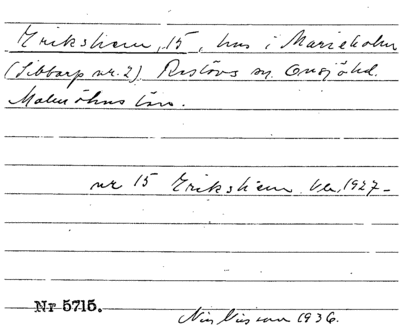 Erikshem, 15, hus i Marieholm
(Sibbarp nr. 2) Reslövs sn. Onsjö hd.
Malmöhus län.
nr 15 Erikshem Ver, 1927-
Nr 5715.
Nils Nilsson 1936.